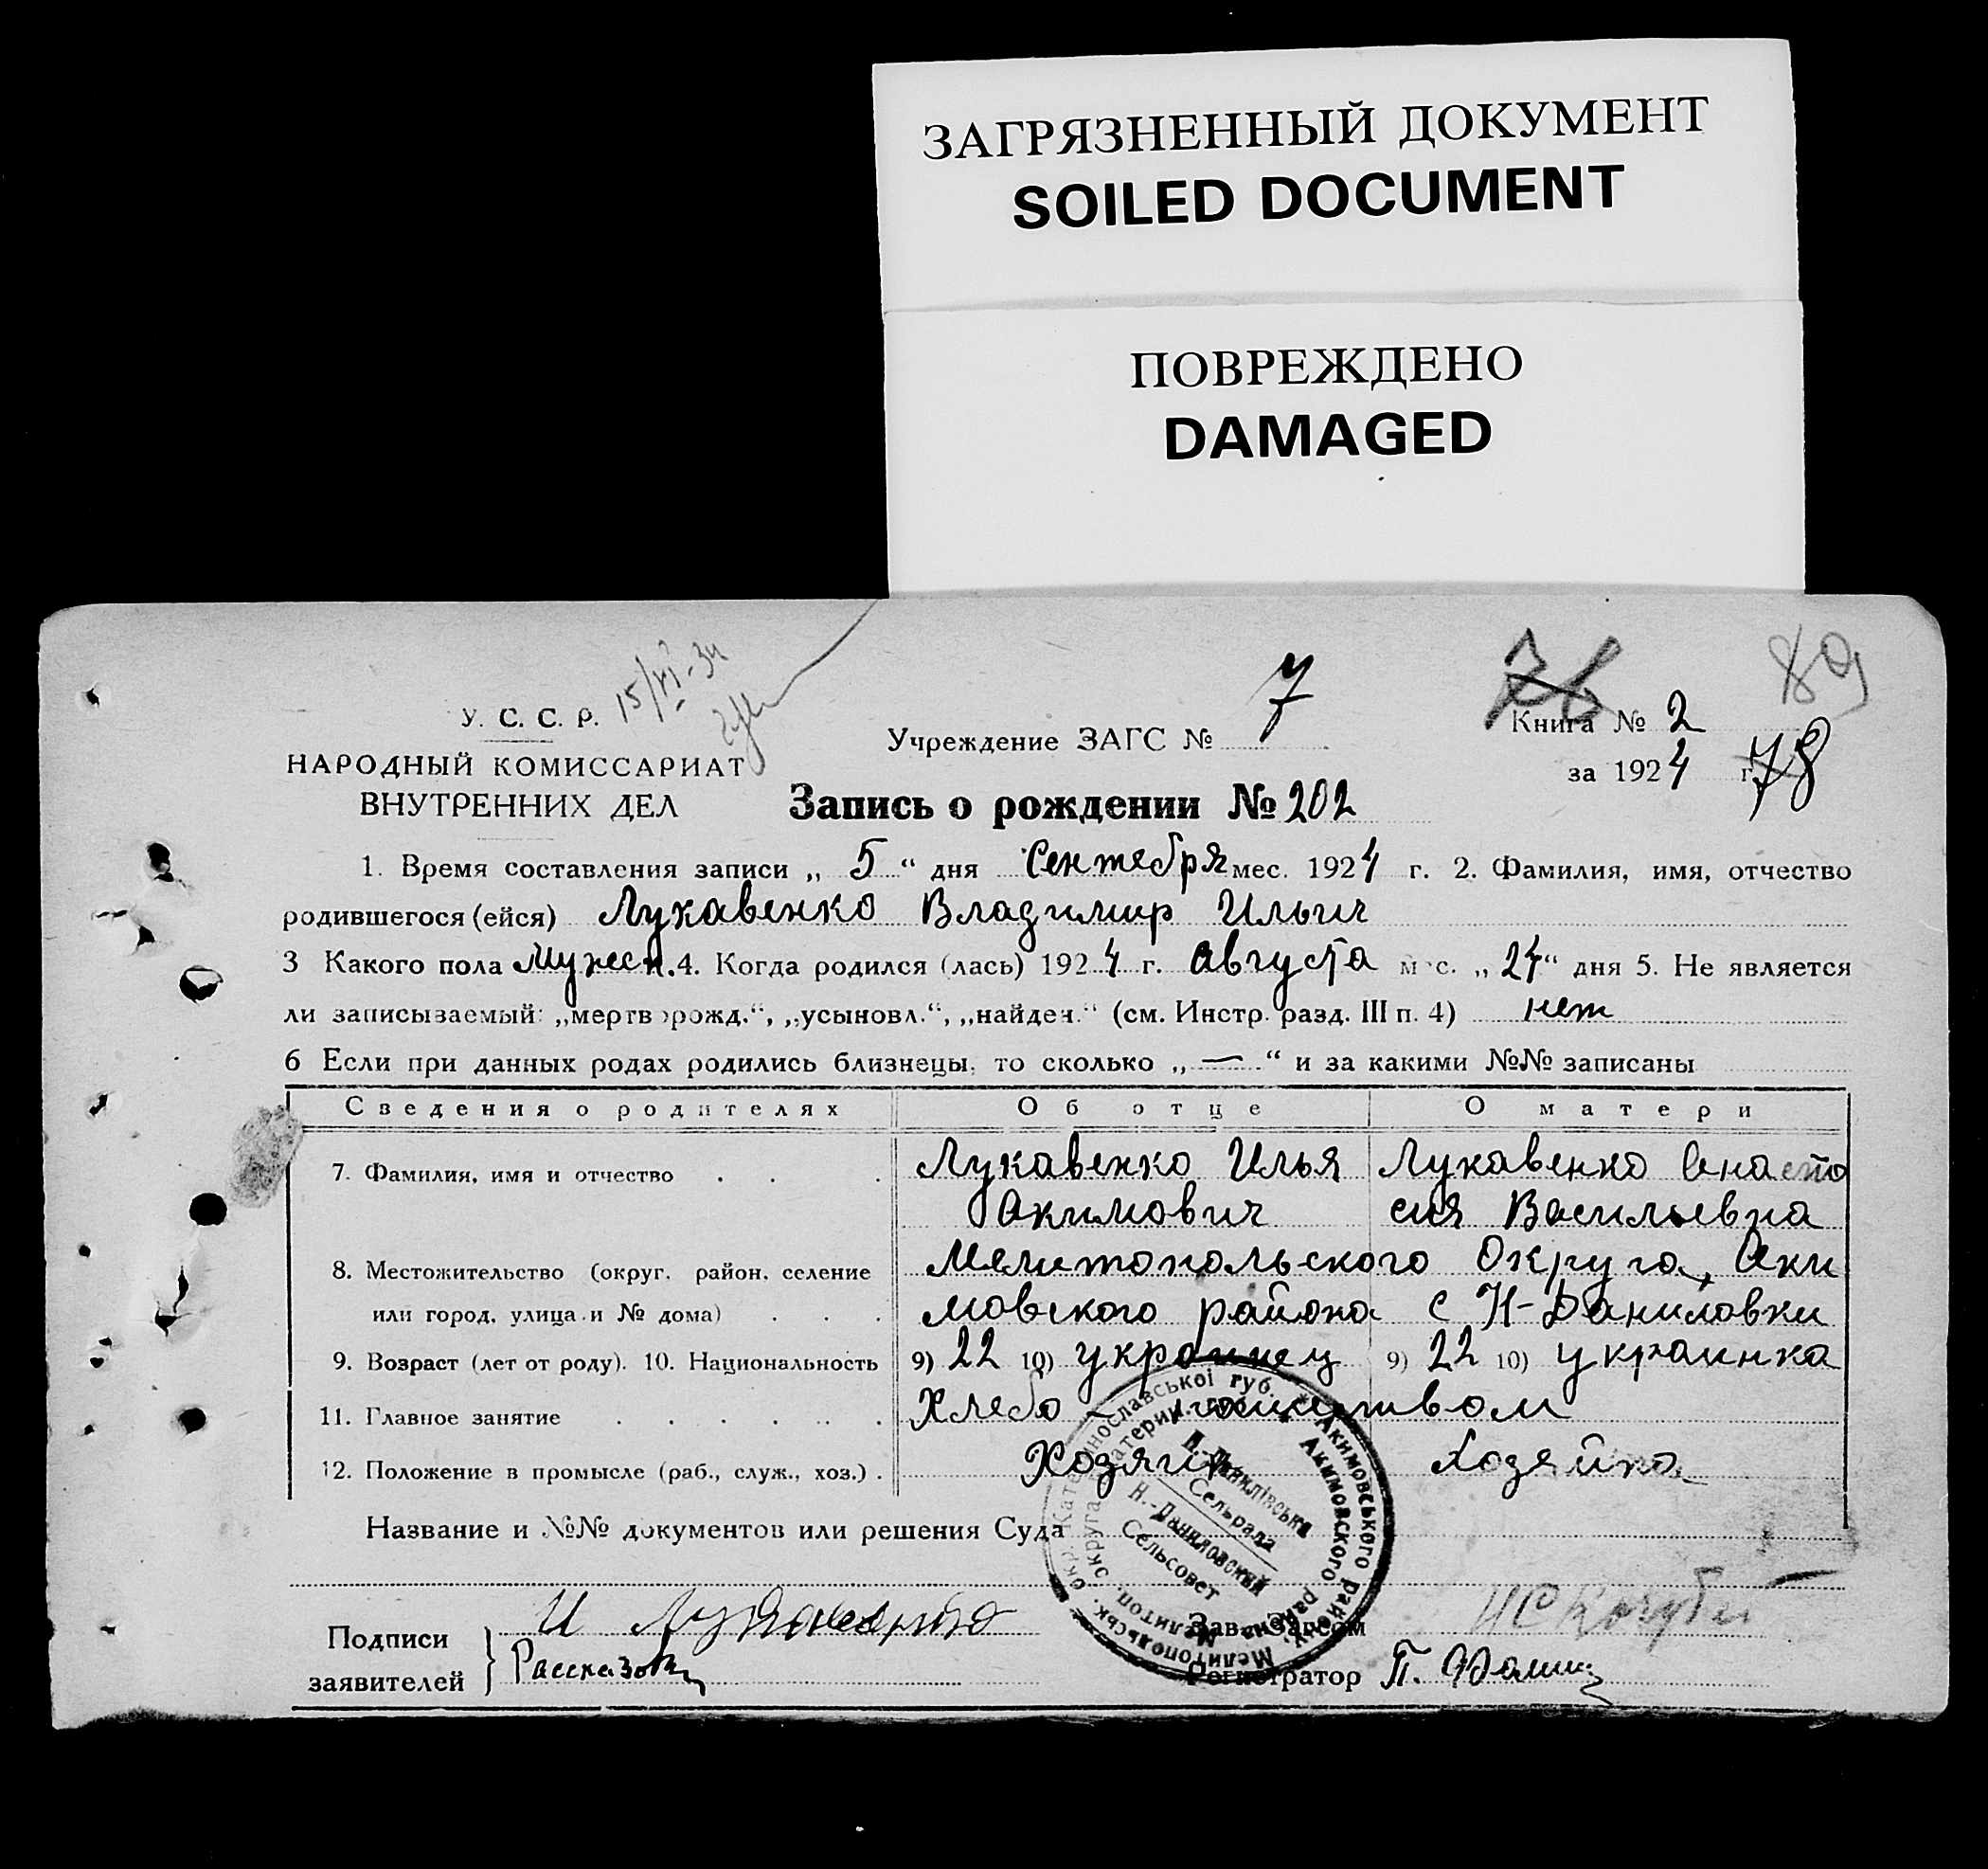 ЗАГРЯЗНЕННЫЙ ДОКУМЕНТ
SOILED DOCUMENT
ПОВРЕЖДЕНО
DAMAGED
У. С. С. Р. 15/VI-34
НАРОДНЫЙ КОМИССАРИАТ
ВНУТРЕННИХ ДЕЛ
Учреждение ЗАГС № 7
76 89
Книга № 2
за 1924 г. 78
Запись о рождении № 202
1. Время составления записи „ 5 “ дня Сентебря мес. 1924 г. 2. Фамилия, имя, отчество
родившегося (ейся) Лукавенко Владимир Ильич
3 Какого пола Мужеск. 4. Когда родился (лась) 1924 г. Августа мес. „24“ дня 5. Не является
ли записываемый: „мертворожд.“, „усыновл.“, „найден.“ (см. Инстр. разд. III п. 4) нет
6 Если при данных родах родились близнецы, то сколько „ — “ и за какими №№ записаны
Сведения о родителях Об отце О матери
7. Фамилия, имя и отчество . . . Лукавенко Илья Лукавенко Анаста
Акимович сия Васильевна
8. Местожительство (округ, район, селение Мелитопольского Округа, Аки
или город, улица и № дома) . . . мовского района с Н-Даниловки
9. Возраст (лет от роду). 10. Национальность 9) 22 10) украинец 9) 22 10) украинка
11. Главное занятие . . . . . . Хлебо - пашеством
12. Положение в промысле (раб., служ., хоз.) . Хозяин Хозяйка
Название и №№ документов или решения Суда
Н.-Данилівська
Сельрада
Н.-Даниловский
Сельсовет
Акимовського району, Мелитопольськ. окр. Катеринославської губ.
Акимовского района Мелитоп. округа Катерин. губ.
Подписи
заявителей
И Лукавенко
Зав. Загсом
Регистратор П.